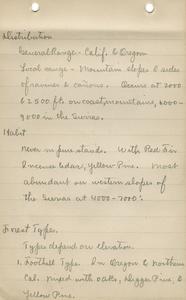 Distribution
General Range - Calif. & Oregon
Local range - Mountain slopes & sides
of ravines & canons. Occurs at 2000
to 2500 ft. on coast mountains, 4000-
9000 in the Sierras.
Habit
Never in pure stands. With Red Fir
Incense Cedar, Yellow Pine. Most
abundant on western slopes of
the Sierras at 4000-7000'.
Forest Types.
Types depend on elevation.
1. Foothill Type. In Oregon & northern
Cal. mixed with oaks, Digger Pine, &
Yellow Pine.